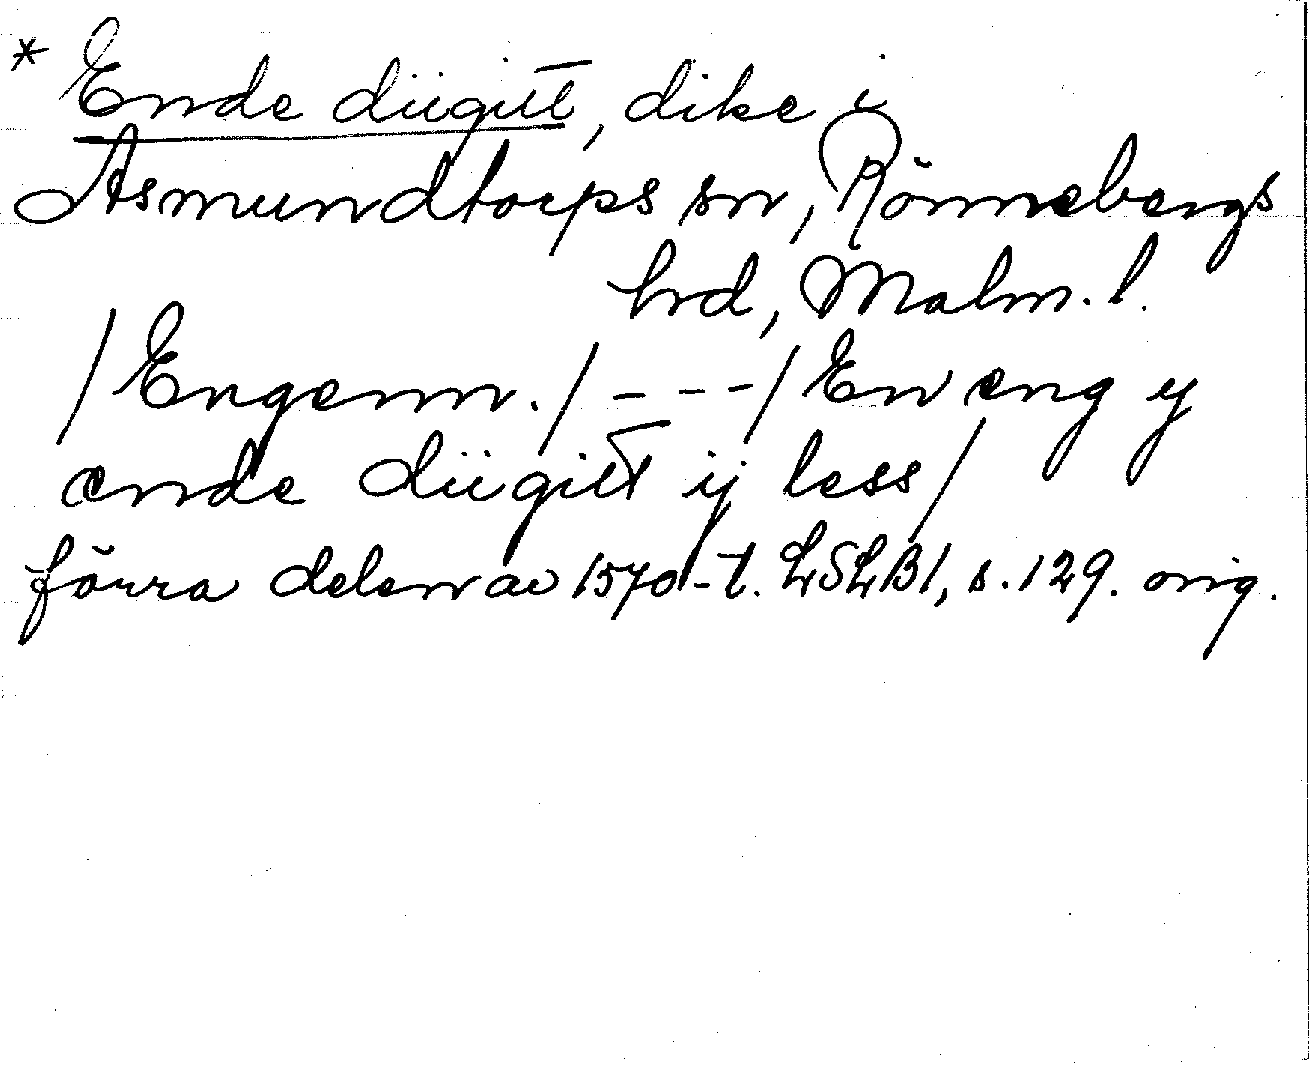 * Ende diigitt, dike i
Asmundtorps sn, Rönnebergs
hrd, Malm. l.
/Engenn./ - - - /En eng y
ende diigitt ij less/
förra delen av 1570-t. LSLB1, s. 129. orig.